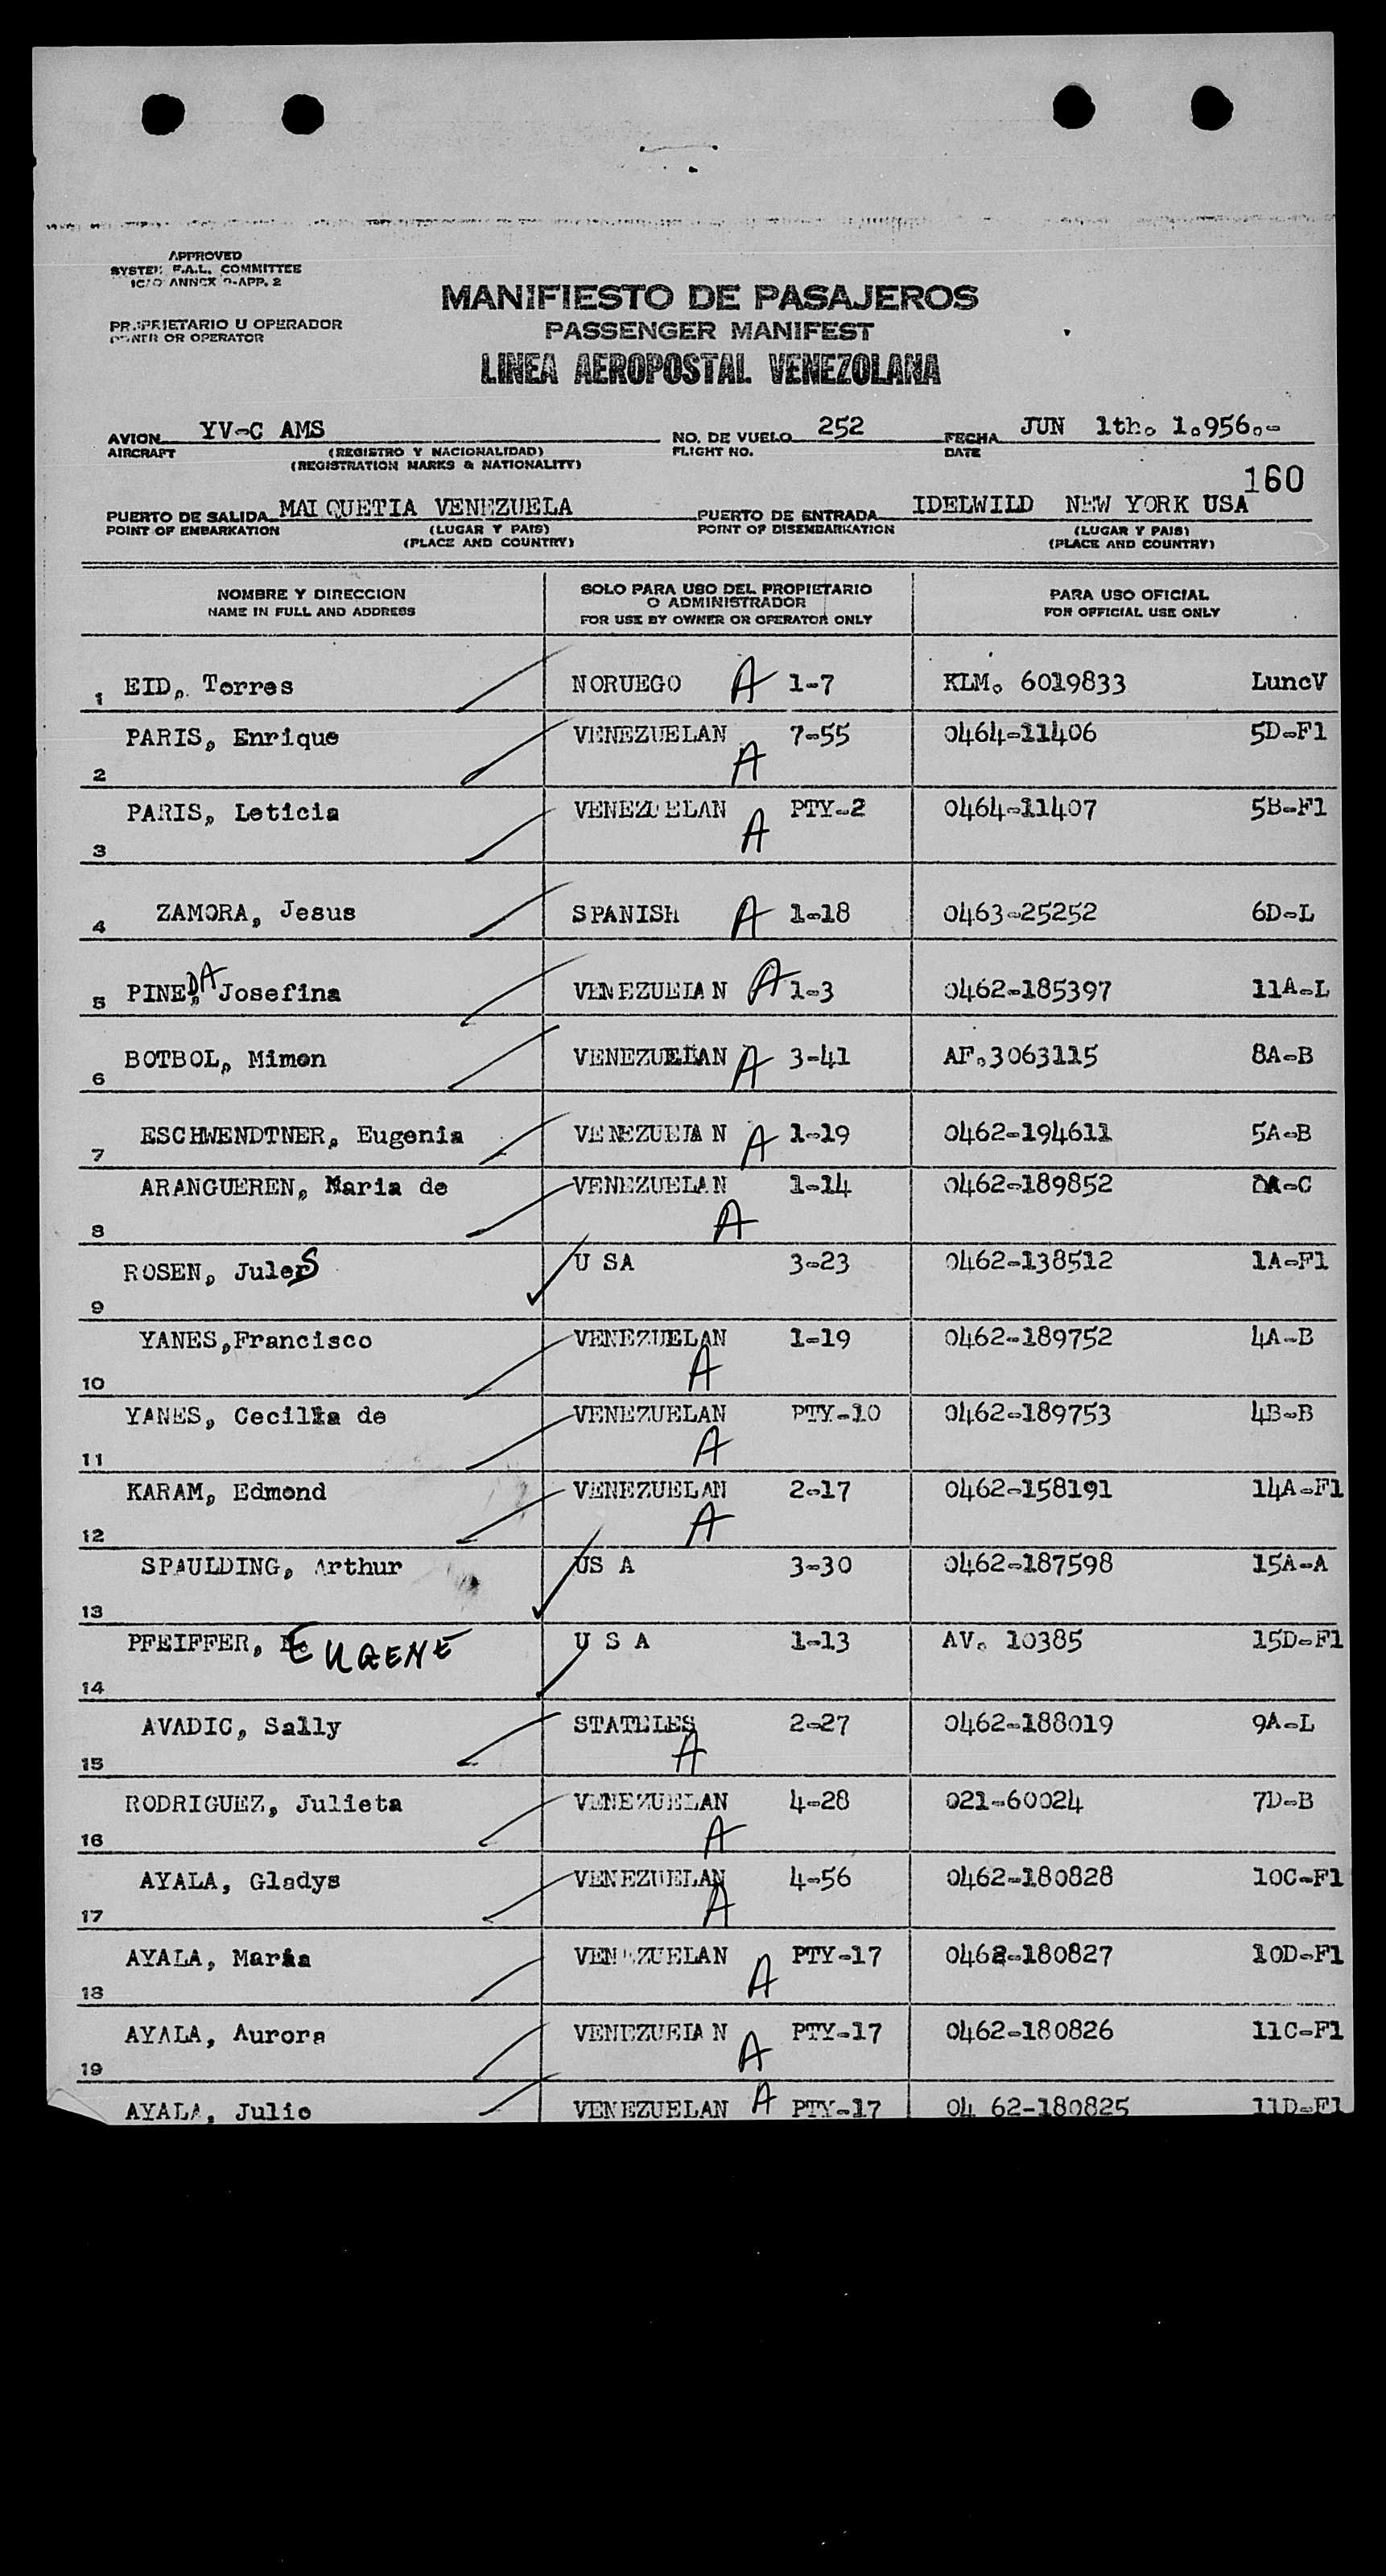 APPROVED
SYSTEM F.A.L. COMMITTEE
ICAO ANNEX 9-APP. 2
MANIFIESTO DE PASAJEROS
PROPRIETARIO U OPERADOR
OWNER OR OPERATOR
PASSENGER MANIFEST
LINEA AEROPOSTAL VENEZOLANA
AVION YV-C AMS NO. DE VUELO 252 FECHA JUN 1th. 1.956.-
AIRCRAFT (REGISTRO Y NACIONALIDAD) FLIGHT NO. DATE
(REGISTRATION MARKS & NATIONALITY)
160
PUERTO DE SALIDA MAIQUETIA VENEZUELA PUERTO DE ENTRADA IDELWILD NEW YORK USA
POINT OF EMBARKATION (LUGAR Y PAIS) POINT OF DISEMBARKATION (LUGAR Y PAIS)
(PLACE AND COUNTRY) (PLACE AND COUNTRY)
NOMBRE Y DIRECCION SOLO PARA USO DEL PROPIETARIO O ADMINISTRADOR PARA USO OFICIAL
NAME IN FULL AND ADDRESS FOR USE BY OWNER OR OPERATOR ONLY FOR OFFICIAL USE ONLY
1 EID, Torres NORUEGO A 1-7 KLM. 6019833 LuncV
2 PARIS, Enrique VENEZUELAN A 7-55 0464-11406 5D-F1
3 PARIS, Leticia VENEZUELAN A PTY-2 0464-11407 5B-F1
4 ZAMORA, Jesus SPANISH A 1-18 0463-25252 6D-L
5 PINEDA, Josefina VENEZUELAN A 1-3 0462-185397 11A-L
6 BOTBOL, Mimon VENEZUELAN A 3-41 AF.3063115 8A-B
7 ESCHWENDTNER, Eugenia VENEZUELAN A 1-19 0462-194611 5A-B
8 ARANGUEREN, Maria de VENEZUELAN A 1-14 0462-189852 A-C
9 ROSEN, Jules U SA 3-23 0462-138512 1A-F1
10 YANES,Francisco VENEZUELAN A 1-19 0462-189752 4A-B
11 YANES, Cecilia de VENEZUELAN A PTY-10 0462-189753 4B-B
12 KARAM, Edmond VENEZUELAN A 2-17 0462-158191 14A-F1
13 SPAULDING, Arthur US A 3-30 0462-187598 15A-A
14 PFEIFFER, EUGENE U S A 1-13 AV. 10385 15D-F1
15 AVADIC, Sally STATELES A 2-27 0462-188019 9A-L
16 RODRIGUEZ, Julieta VENEZUELAN A 4-28 021-60024 7D-B
17 AYALA, Gladys VENEZUELAN A 4-56 0462-180828 10C-F1
18 AYALA, Maria VENEZUELAN A PTY-17 0462-180827 10D-F1
19 AYALA, Aurora VENEZUELAN A PTY-17 0462-180826 11C-F1
AYALA, Julio VENEZUELAN A PTY-17 04 62-180825 11D-F1